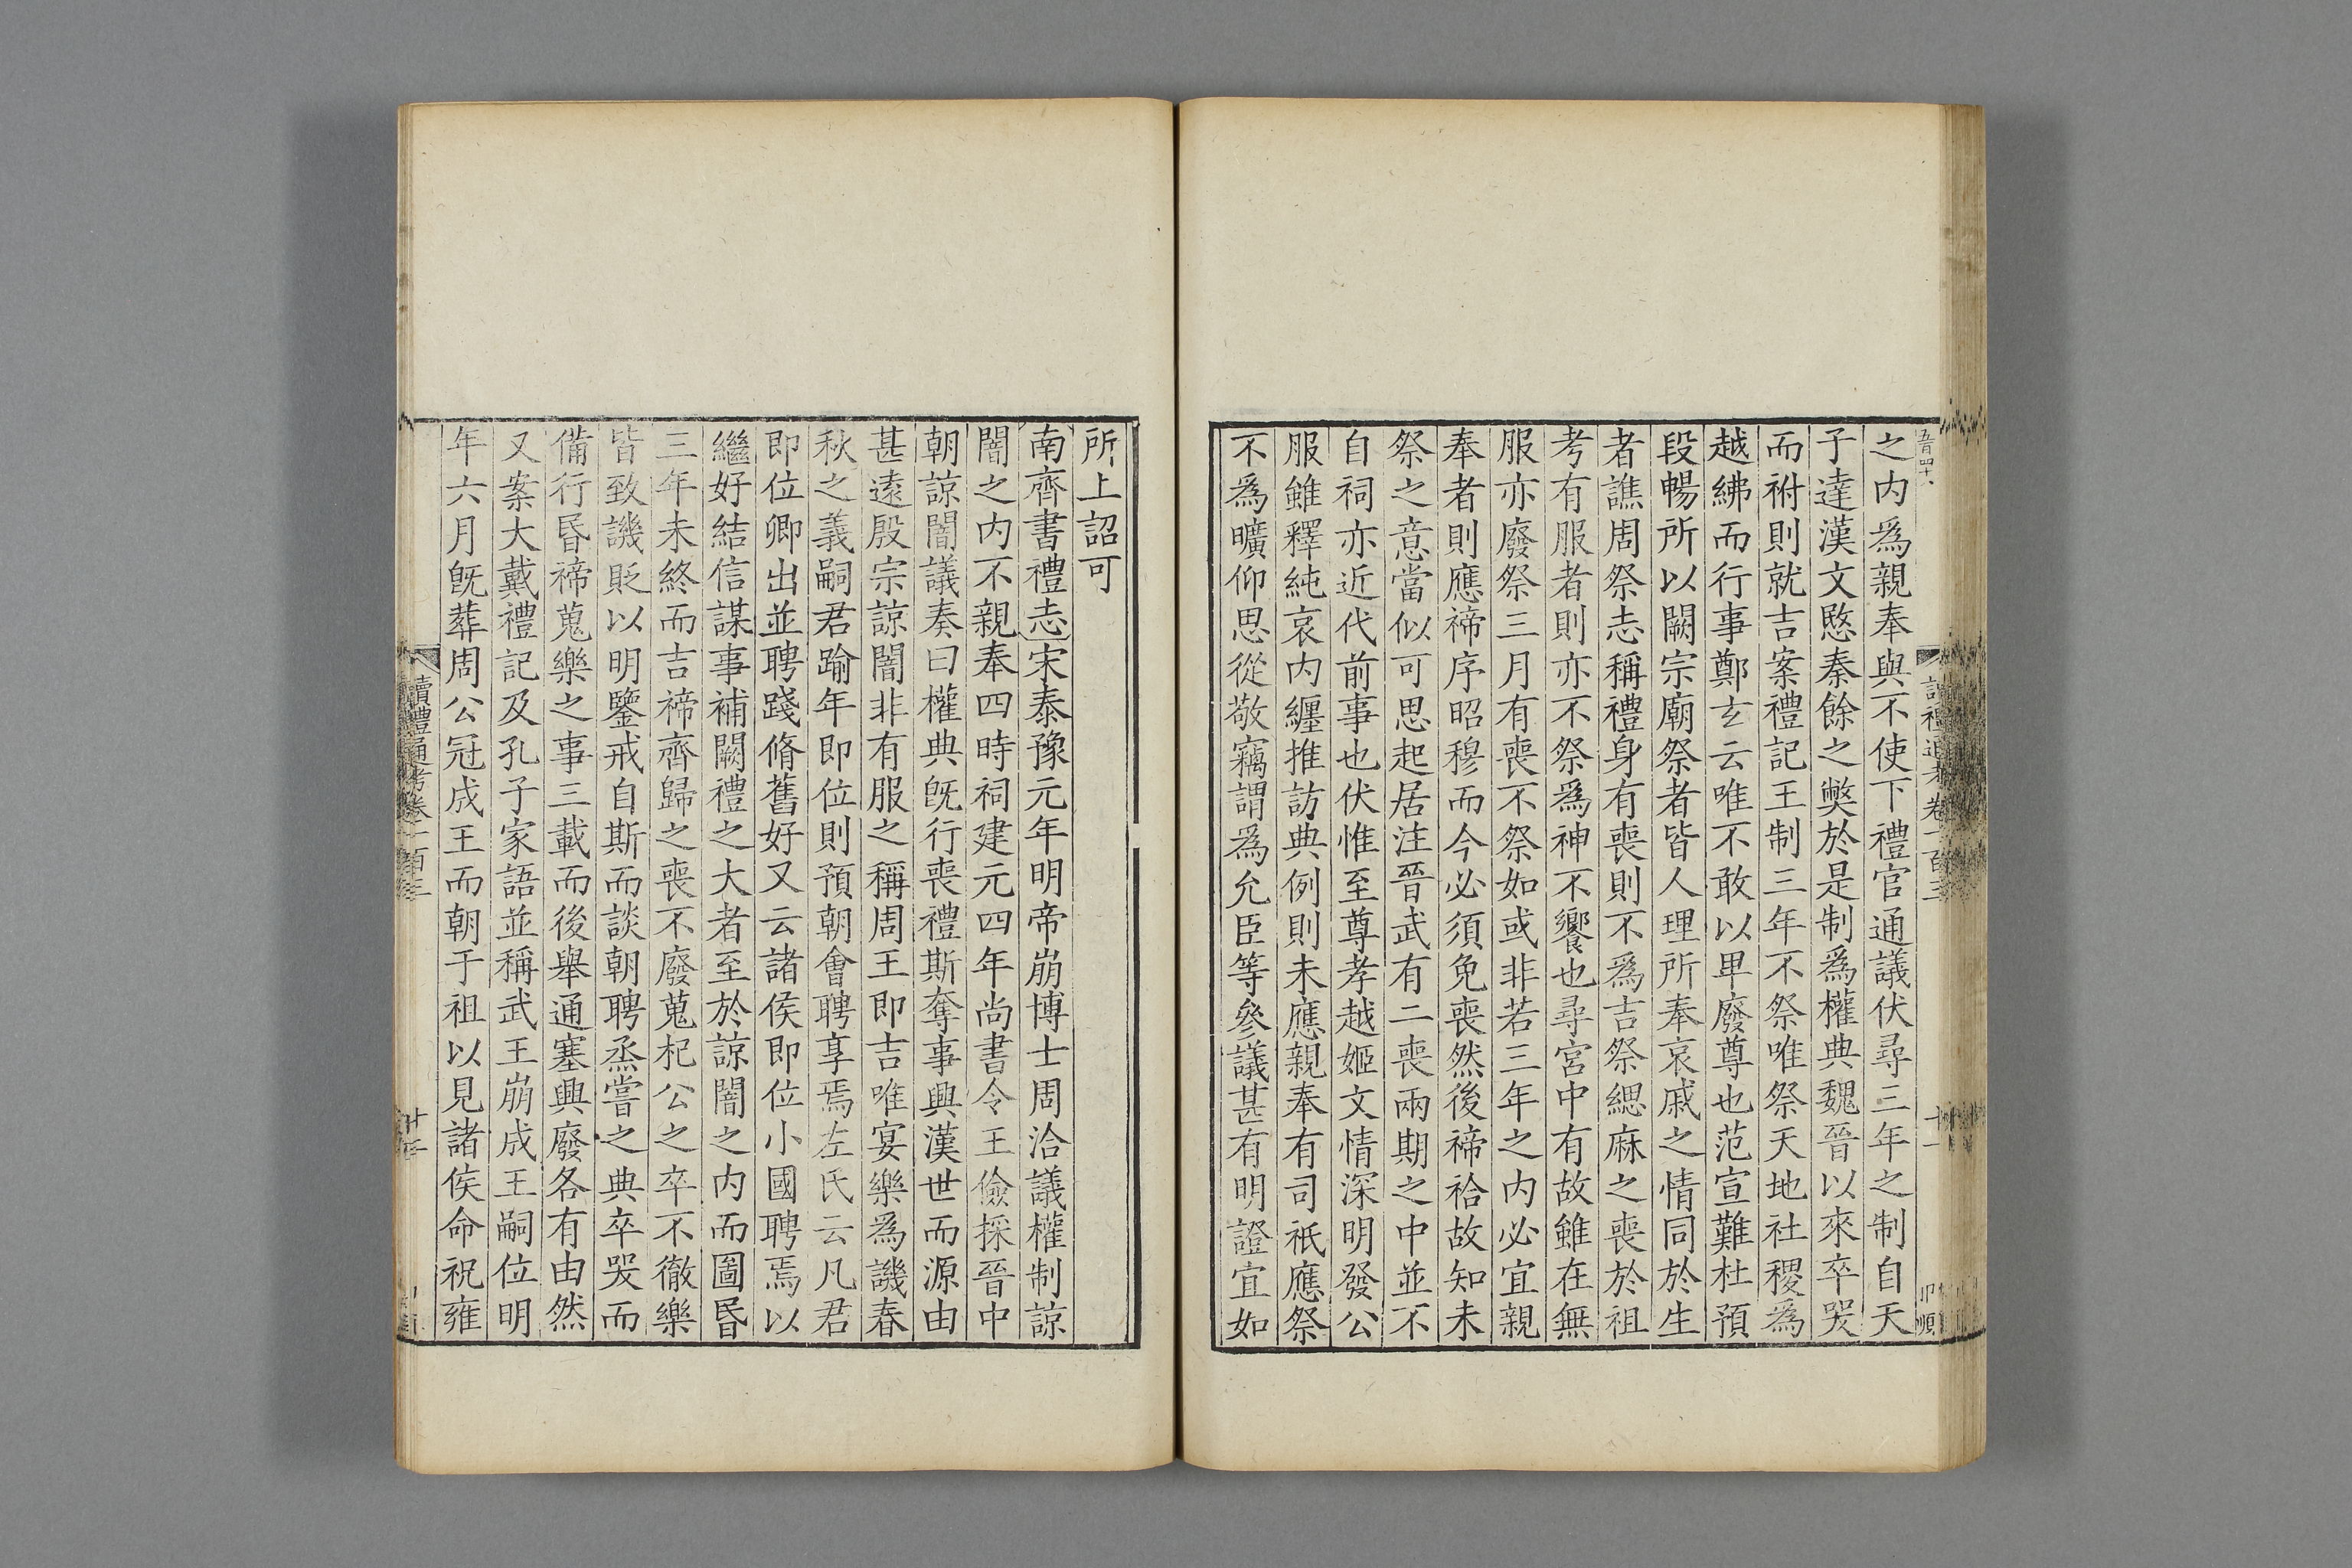 之内爲親奉與不使下禮官通議伏尋三年之制自天
子達漢文愍秦餘之獘於是制爲權典魏晉以來卒哭
而祔則就吉案禮記王制三年不祭唯祭天地社稷爲
越紼而行事鄭玄云唯不敢以卑廢尊也范宣難杜預
段暢所以闕宗廟祭者皆人理所奉哀戚之情同於生
者譙周祭志稱禮身有喪則不爲吉祭緦麻之喪於祖
考有服者則亦不祭爲神不饗也尋宮中有故雖在無
服亦廢祭三月有喪不祭如或非若三年之内必宜親
奉者則應禘序昭穆而今必須免喪然後禘祫故知未
祭之意當似可思起居注晉武有二喪兩期之中並不
自祠亦近代前事也伏惟至尊孝越姬文情深明發公
服雖釋純哀内纏推訪典例則未應親奉有司祇應祭
不爲曠仰思從敬竊謂爲允臣等參議甚有明證宜如
所上詔可
南齊書禮志宋泰豫元年明帝崩博士周洽議權制諒
闇之内不親奉四時祠建元四年尚書令王儉採晉中
朝諒闇議奏曰權典旣行喪禮斯奪事興漢世而源由
甚遠殷宗諒闇非有服之稱周王即吉唯宴樂爲譏春
秋之義嗣君踰年即位則預朝會聘享焉左氏云凡君
即位卿出並聘踐脩舊好又云諸侯即位小國聘焉以
繼好結信謀事補闕禮之大者至於諒闇之内而圖昏
三年未終而吉禘齊歸之喪不廢蒐杞公之卒不徹樂
皆致譏貶以明鑒戒自斯而談朝聘烝嘗之典卒哭而
備行昏禘蒐樂之事三載而後舉通塞興廢各有由然
又案大戴禮記及孔子家語並稱武王崩成王嗣位明
年六月旣葬周公冠成王而朝于祖以見諸侯命祝雍
讀禮通考卷一百三